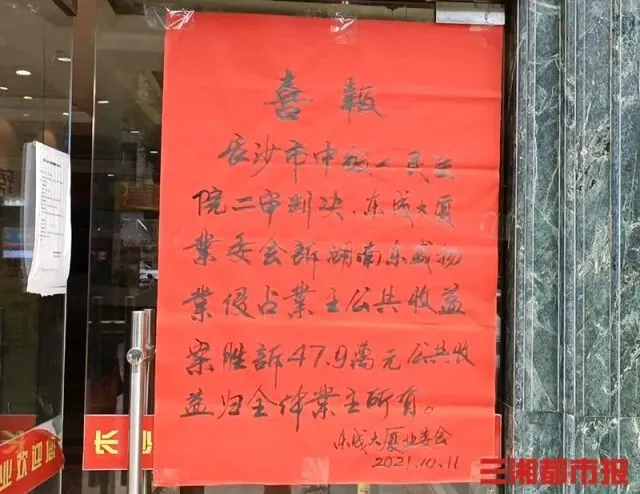 喜報
長沙市中级人民法
院二审判决、东成大厦
業委会訴湖南东盛物
業侵占業主公共收益
案胜訴47.9萬元公共收
益归全体業主所有。
东成大厦业委会
2021.10.11
长
业欢迎您
三湘都市报